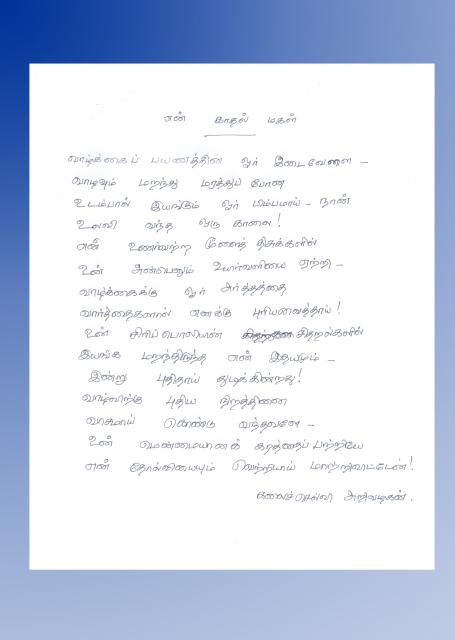 என் காதல் மகள்
வாழ்க்கைப் பயணத்தின் ஓர் இடைவேளை –
வாழவும் மறந்து மரத்துப் போன
உடம்பால் இயங்கும் ஓர் பிம்பமாய் – நான்
உலவி வந்த ஒரு காலை!
என் உணர்வற்ற மூளைத் திசுக்களில்
உன் அன்பெனும் உயிர்வளியை ஏற்றி –
வாழ்க்கைக்கு ஓர் அர்த்தத்தை
வார்த்தைகளால் எனக்கு புரியவைத்தாய்!
உன் சிரிப்பொலியின் சிதறல்களில்
இயங்க மறந்திருந்த என் இதயமும் –
இன்று புதிதாய் துடிக்கின்றது!
வாழ்விற்கு புதிய நிறத்தினை
வாகமாய் கொண்டு வந்தவளே –
உன் மென்மையானக் கரத்தைப் பற்றியே
என் தோல்வியையும் வெற்றியாய் மாற்றிவிட்டேன்!
அறிவழகன்.